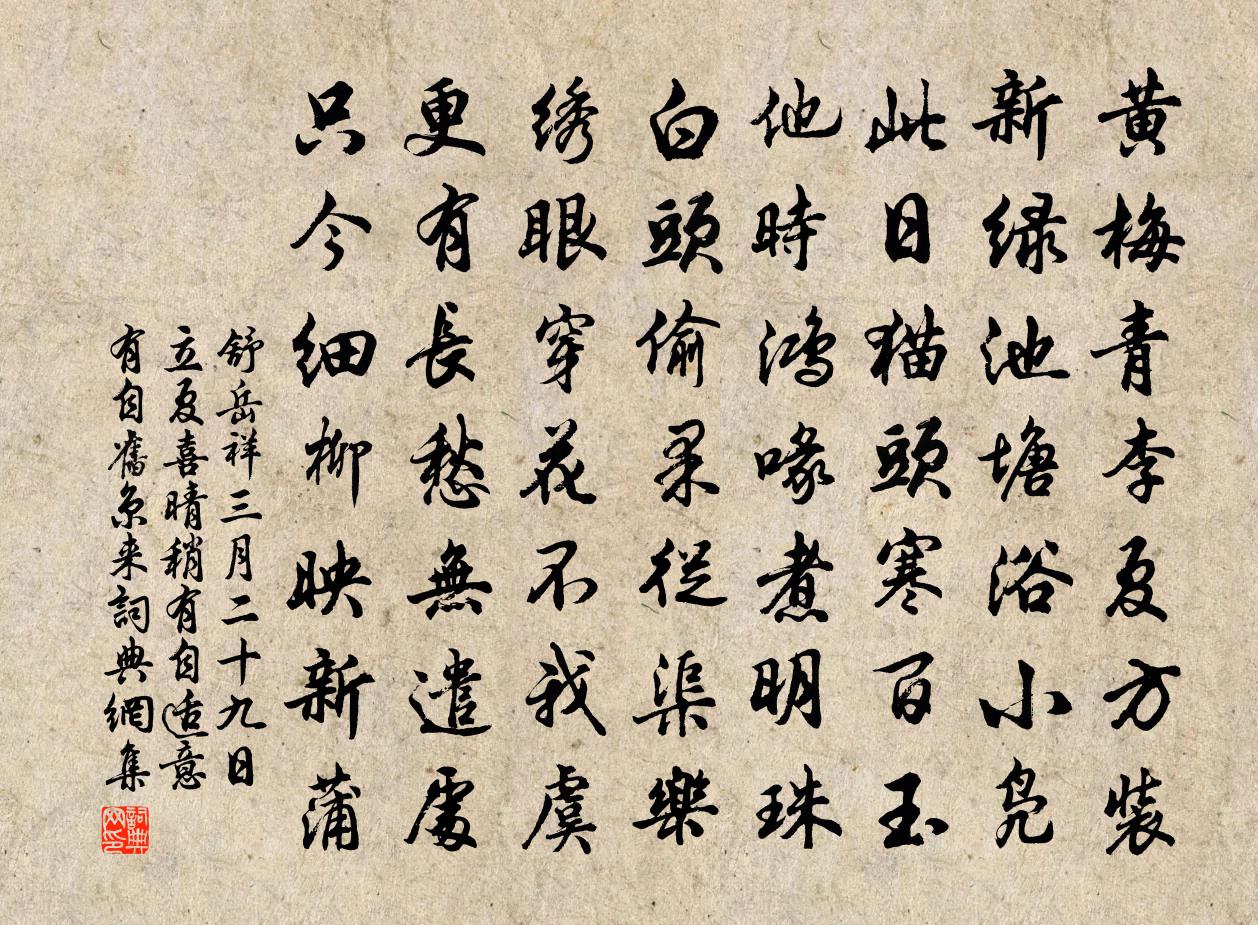 黄梅青李夏方裝
新緑池塘浴小凫
此日猫頭寒百玉
他時鴻喙煮明珠
白頭偷果從渠樂
绣眼穿花不我虞
更有長愁無遣處
只今细柳映新蒲
舒岳祥三月二十九日
立夏喜晴稍有自适意
有自舊京来詞典網集
詞典网印